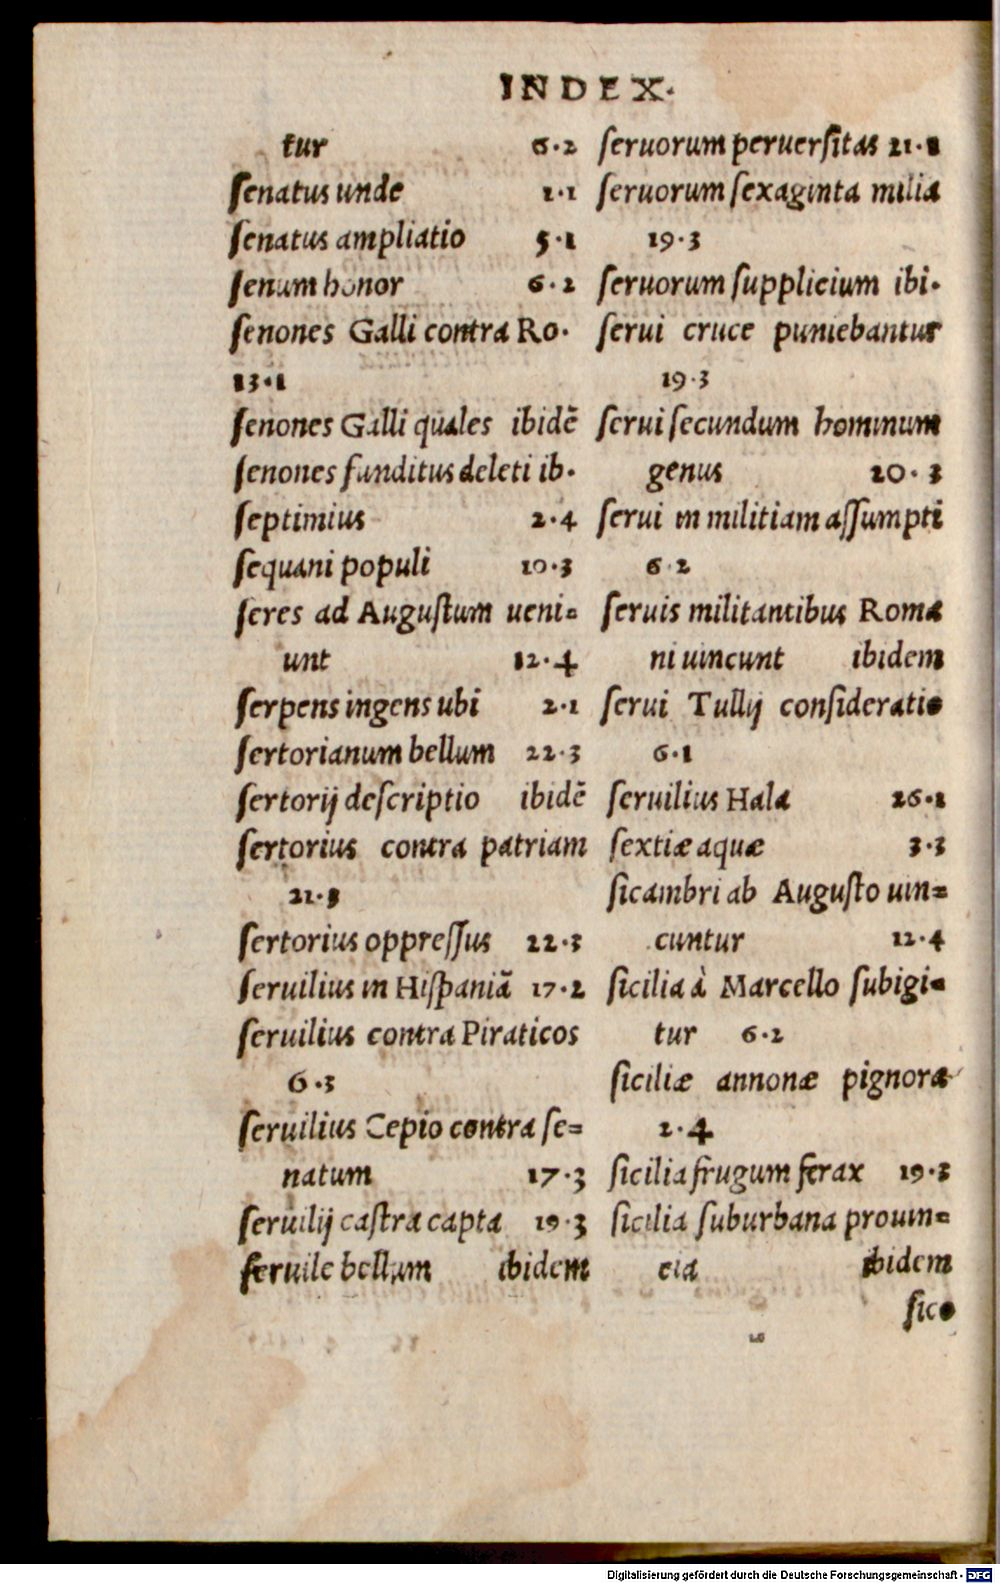 INDEX.
tur 6.2
ſenatus unde 1.1
ſenatus ampliatio 5.1
ſenum honor 6.2
ſenones Galli contra Ro.
13.1
ſenones Galli quales ibidē
ſenones funditus deleti ib.
ſeptimius 2.4
ſequani populi 10.3
ſeres ad Auguſtum ueni=
unt 12.4
ſerpens ingens ubi 2.1
ſertorianum bellum 22.3
ſertorij deſcriptio ibidē
ſertorius contra patriam
21.3
ſertorius oppreſſus 22.3
ſeruilius in Hiſpaniā 17.2
ſeruilius contra Piraticos
6.3
ſeruilius Cepio contra ſe=
natum 17.3
ſeruilij caſtra capta 19.3
ſeruile bellum ibidem
ſeruorum peruerſitas
ſeruorum ſexaginta milia
19.3
ſeruorum ſupplicium ibi.
ſerui cruce puniebantur
19.3
ſerui ſecundum hominum
genus 20.3
ſerui in militiam aſſumpti
6.2
ſeruis militantibus Roma
ni uincunt ibidem
ſerui Tullij conſideratio
6.1
ſeruilius Hala 26.1
ſextiæ aquæ 3.3
ſicambri ab Auguſto uin=
cuntur 12.4
ſicilia à Marcello ſubigi=
tur 6.2
ſiciliæ annonæ pignora
2.4
ſicilia frugum ferax 19.3
ſicilia ſuburbana prouin=
cia ibidem
ſico
Digitalisierung gefördert durch die Deutsche Forschungsgemeinschaft - DFG